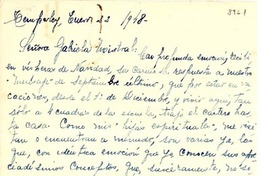 Temperley, Enero 22 1948
Señora Gabriela Mistral: Con profunda emoción, recibí
en vísperas de Navidad, su respuesta a nuestro
mensaje de Septiembre último, que por estar en va-
caciones, desde el 1º de Diciembre, y vivir aquí tan
sólo a cuadras de la escuela, trajo el cartero has-
ta casa. Como mis hijas espirituales, me visi-
tan o encuentran a menudo, son varias ya, las
que, con idéntica emoción que yo conocen sus apre-
ciadísimos conceptos, que, sinceramente, no se